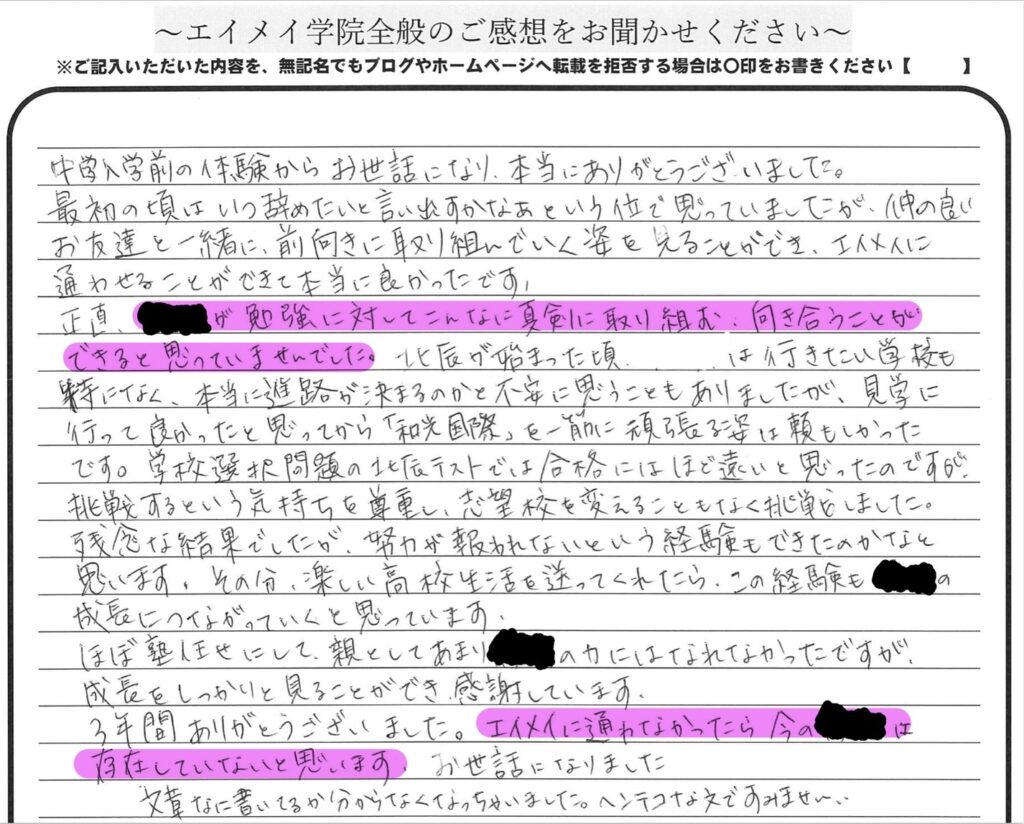 ～エイメイ学院全般のご感想をお聞かせください～
※ご記入いただいた内容を、無記名でもブログやホームページへ転載を拒否する場合は〇印をお書きください【　　　】
中学入学前の体験からお世話になり、本当にありがとうございました。
最初の頃はいつ辞めたいと言い出すかなあという位で思っていましたが、仲の良い
お友達と一緒に、前向きに取り組んでいく姿を見ることができ、エイメイに
通わせることができて本当に良かったです。
正直、が勉強に対してこんなに真剣に取り組む、向き合うことが
できると思っていませんでした。北辰が始まった頃は行きたい学校も
特になく、本当に進路が決まるのかと不安に思うこともありましたが、見学に
行って良かったと思ってから「和光国際」を一筋に頑張る姿は頼もしかった
です。学校選択問題の北辰テストでは合格にはほど遠いと思ったのですが、
挑戦するという気持ちを尊重し、志望校を変えることもなく挑戦しました。
残念な結果でしたが、努力が報われないという経験もできたのかなと
思います。その分、楽しい高校生活を送ってくれたら、この経験もの
成長につながっていくと思っています。
ほぼ塾任せにして、親としてあまりの力にはなれなかったですが、
成長をしっかりと見ることができ、感謝しています。
3年間ありがとうございました。エイメイに通わなかったら今のは
存在していないと思います。お世話になりました
文章なに書いてるか分からなくなっちゃいました。ヘンテコな文ですみません…